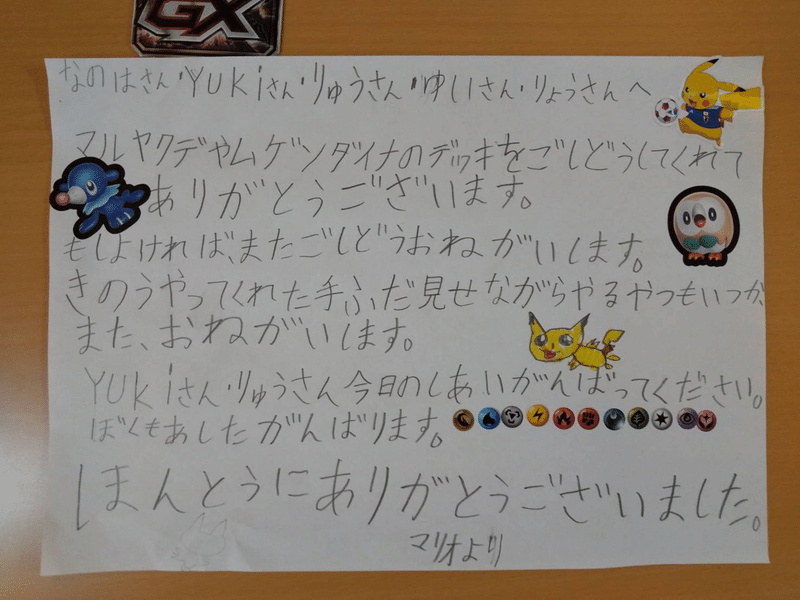 GX
なのはさん・YUKiさん・りゅうさん・ゆいさん・りょうさんへ
マルヤクデやムゲンダイナのデッキをごしどうしてくれて
ありがとうございます。
もしよければ、またごしどうおねがいします。
きのうやってくれた手ふだ見せながらやるやつもいつか、
また、おねがいします。
YUKiさん・りゅうさん今日のしあいがんばってください。
ぼくもあしたがんばります。
ほんとうにありがとうございました。
マリオより